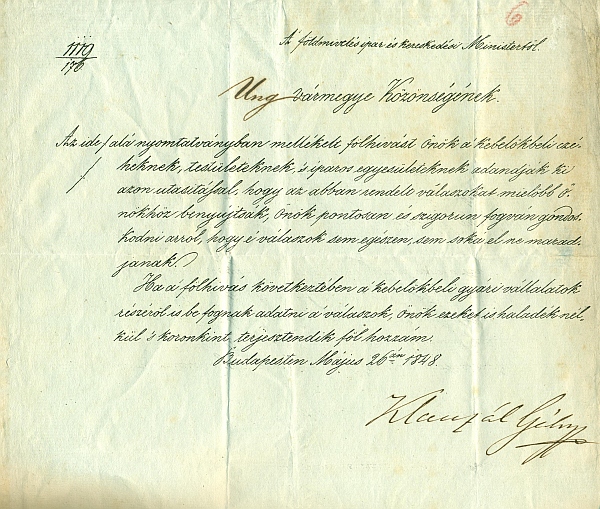 6
1119
176
Az földmivelés ipar és kereskedési Ministertöl.
Ung vármegye Közönségének.
Az ide / alá nyomtatványban mellékelt fölhivást Önök a kebelökbeli czé-
heknek, testületeknek, 's iparos egyesületeknek adandják ki
azon utasitással, hogy az abban rendelt válaszokat mielöbb Ö-
nökhöz benyújtsák, Önök pontosan és szigorun fogván gondos-
kodni arrol, hogy é válaszok sem egészen, sem soká el ne marad-
janak.
Ha a fölhivás következtében a kebelökbeli gyári vállalatok
részéröl is be fognak adatni a válaszok, Önök ezeket is haladék nél-
kül 's koronkint, terjesztendik föl hozzám.
Budapesten Május 26án 1848.
Klauzál Gábor